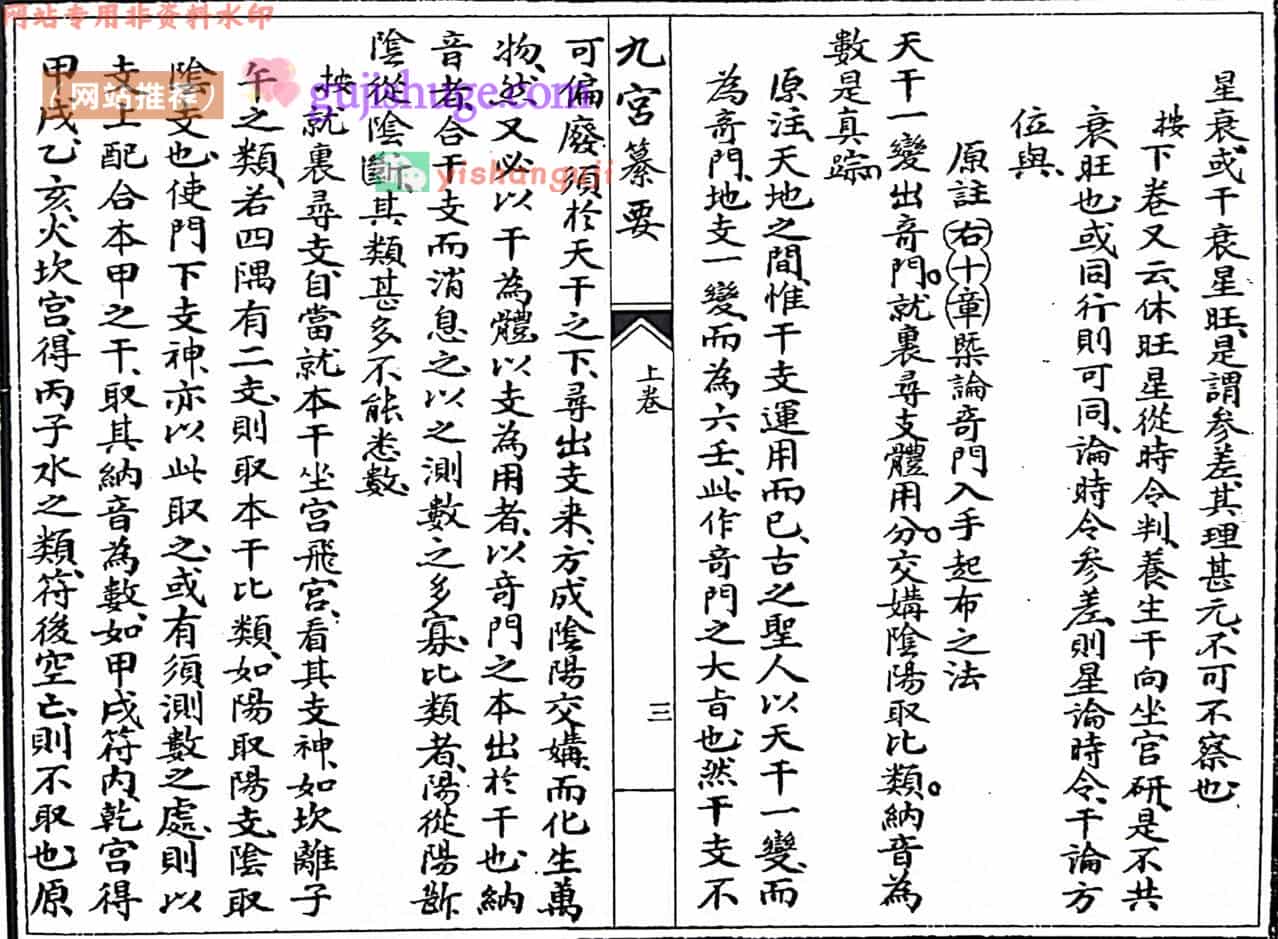 网站专用非资料水印
星衰或干衰星旺是謂参差其理甚元不可不察也
按下卷又云休旺星從時令判養生干向坐官研是不共
衰旺也或同行則可同論時令参差則星論時令干論方
位與
原註右十章槩論竒門入手起布之法
天干一變出竒門。就裏尋支體用分。交媾陰陽取比類。納音為
數是真踪
原注天地之間惟干支運用而已古之聖人以天干一變而
為竒門地支一變而為六壬此作竒門之大旨也然干支不
九宮纂要
上卷
三
可偏廢須於天干之下尋出支来方成陰陽交媾而化生萬
物然又必以干為體以支為用者以竒門之本出於干也納
音者合干支而消息之以之測數之多寡比類者陽從陽斷
陰從陰斷其類甚多不能悉數
按就裏尋支自當就本干坐宮飛宮看其支神如坎離子
午之類若四隅有二支則取本干比類如陽取陽支陰取
陰支也使門下支神亦以此取之或有須測數之處則以
支上配合本甲之干取其納音為數如甲戌符内乾宮得
甲戌乙亥火坎宮得丙子水之類符後空亡則不取也原
(网站推荐)
gujishuge.com
yishanguji